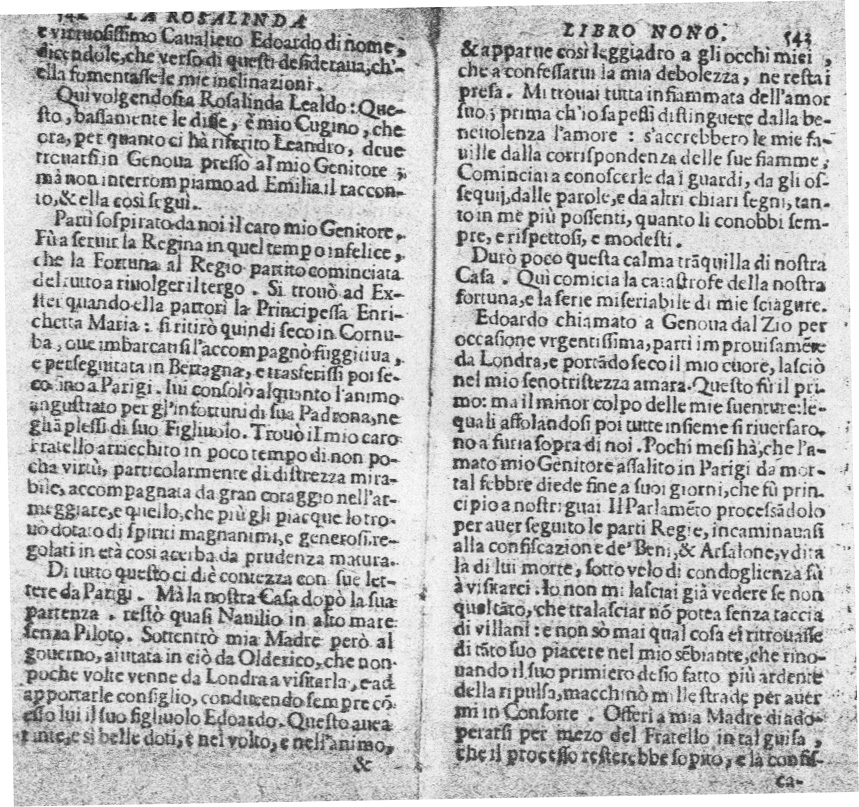 542 LA ROSALINDA
e virtuosissimo Caualiero Edoardo di nome,
dicendole, che verso di questi desideraua, ch'-
ella fomentasse le mie inclinazioni.
Qui volgendosi a Rosalinda Lealdo: Que-
sto, bassamente le disse, è mio Cugino, che
ora, per quanto ci hà riferito Leandro, deue
trouarsi in Genoua presso al mio Genitore;
mà non interrompiamo ad Emilia il raccon-
to, & ella così seguì.
Partì sospirato da noi il caro mio Genitore.
Fù a seruir la Regina in quel tempo infelice,
che la Fortuna al Regio partito cominciata
del tutto a riuolger il tergo. Si trouò ad Ex-
ster quando ella partorì la Principessa Enri-
chetta Maria: si ritirò quindi seco in Cornu-
ba, oue imbarcatasi l'accompagnò fuggitiua,
e perseguitata in Bertagna, e trasferissi poi se-
co sino a Parigi. Iui consolò alquanto l'animo
angustiato per gl'infortuni di sua Padrona, ne
gli āplessi di suo Figliuolo. Trouò il mio caro
Fratello arricchito in poco tempo di non po-
cha virtù, particolarmente di distrezza mira-
bile, accompagnata da gran coraggio nell'ar-
meggiare, e quello, che più gli piacque lo tro-
uò dotato di spiriti magnanimi, e generosi, re-
golati in età così acerba da prudenza matura.
Di tutto questo ci diè contezza con sue let-
tere da Parigi. Mà la nostra Casa dopò la sua
partenza. restò quasi Nauilio in alto mare
senza Piloto. Sottentrò mia Madre però al
gouerno, aiutata in ciò da Olderico, che non
poche volte venne da Londra a visitarla, e ad
apportarle consiglio, conducendo sempre cō
esso lui il suo figliuolo Edoardo. Questo auea
tante, e sì belle doti, e nel volto, e nell'animo,
&
LIBRO NONO. 543
& apparue così leggiadro a gli occhi miei,
che a confessarui la mia debolezza, ne restai
presa. Mi trouai tutta infiammata dell'amor
suo; prima ch'io sapessi distinguere dalla be-
neuolenza l'amore: s'accrebbero le mie fa-
uille dalla corrispondenza delle sue fiamme;
Cominciai a conoscerle da i guardi, da gli os-
sequij, dalle parole, e da altri chiari segni, tan-
to in mè più possenti, quanto li conobbi sem-
pre, e rispettosi, e modesti.
Durò poco questa calma trāquilla di nostra
Casa. Qui comicia la catastrofe della nostra
fortuna, e la serie miseriabile di mie sciagure.
Edoardo chiamato a Genoua dal Zio per
occasione vrgentissima, partì improuisamēte
da Londra, e portādo seco il mio cuore, lasciò
nel mio seno tristezza amara. Questo fù il pri-
mo: ma il minor colpo delle mie suenture: le-
quali affolandosi poi tutte insieme si riuersaro-
no a furia sopra di noi. Pochi mesi hà, che l'a-
mato mio Genitore assalito in Parigi da mor-
tal febbre diede fine a suoi giorni, che fù prin-
cipio a nostri guai Il Parlamēto processādolo
per auer seguito le parti Regie, incaminauasi
alla confiscazione de' Beni, & Arsalone, vdita
la di lui morte, sotto velo di condoglienza fù
à visitarci. Io non mi lasciai già vedere se non
quel tāto, che tralasciar nō potea senza taccia
di villani: e non sò mai qual cosa ei ritrouasse
di tāto suo piacere nel mio sēbiante, che rino-
uando il suo primiero desio fatto più ardente
della ripulsa, macchinò mille strade per auer
mi in Consorte. Offerì a mia Madre di ado-
perarsi per mezo del Fratello in tal guisa,
che il processo resterebbe sopito, e la confis-
ca-